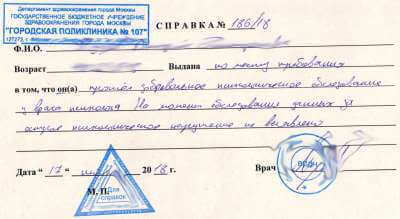 Департамент здравоохранения города Москвы
ГОСУДАРСТВЕННОЕ БЮДЖЕТНОЕ УЧРЕЖДЕНИЕ
ЗДРАВООХРАНЕНИЯ ГОРОДА МОСКВЫ
"ГОРОДСКАЯ ПОЛИКЛИНИКА № 107"
127273, г.
СПРАВКА № 186/18
Ф.И.О.
Возраст Выдана по месту требования
в том, что он(а) прошел добровольное психологическое обследование
у врача психолога На момент обследования данных за
острое психологическое нарушение не выявлено
Дата " 17 " 20 18 г. Врач
М.П.
Для
справок
ВРАЧ